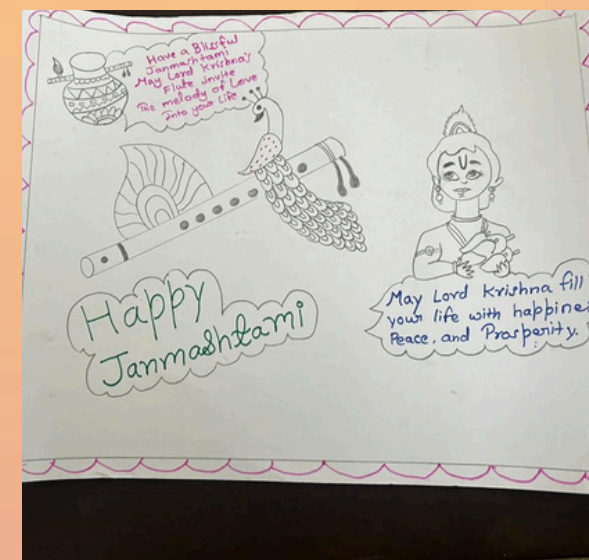 Have a Blissful
Janmashtami
May Lord Krishna's
Flute invite
The melody of Love
Into your Life
Happy
Janmashtami
May Lord Krishna fill
your life with happines
Peace, and Prosperity.